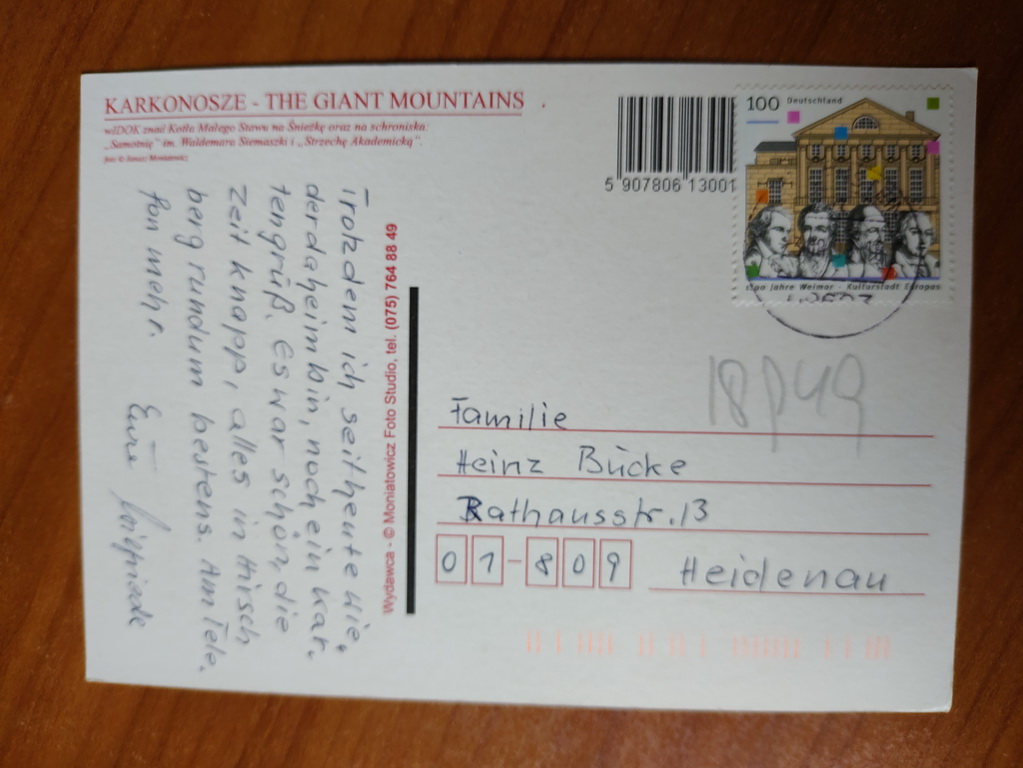 KARKONOSZE - THE GIANT MOUNTAINS
wIDOK znad Kotła Małego Stawu na Śnieżkę oraz na schroniska:
„Samotnię” im. Waldemara Siemaszki i „Strzechę Akademicką”.
foto © Janusz Moniatowicz
5 907806 13001
100 Deutschland
1100 Jahre Weimar - Kulturstadt Europas
Trotzdem ich seit heute wie,
der daheim bin, noch ein Kar.
tengruß. Es war schön, die
Zeit knapp, alles in Hirsch
berg rundum bestens. Am Tele.
fon mehr.
Eure
Wydawca - © Moniatowicz Foto Studio, tel. (075) 764 88 49
18P49
Familie
Heinz Bücke
Rathausstr. 13
01-809 Heidenau